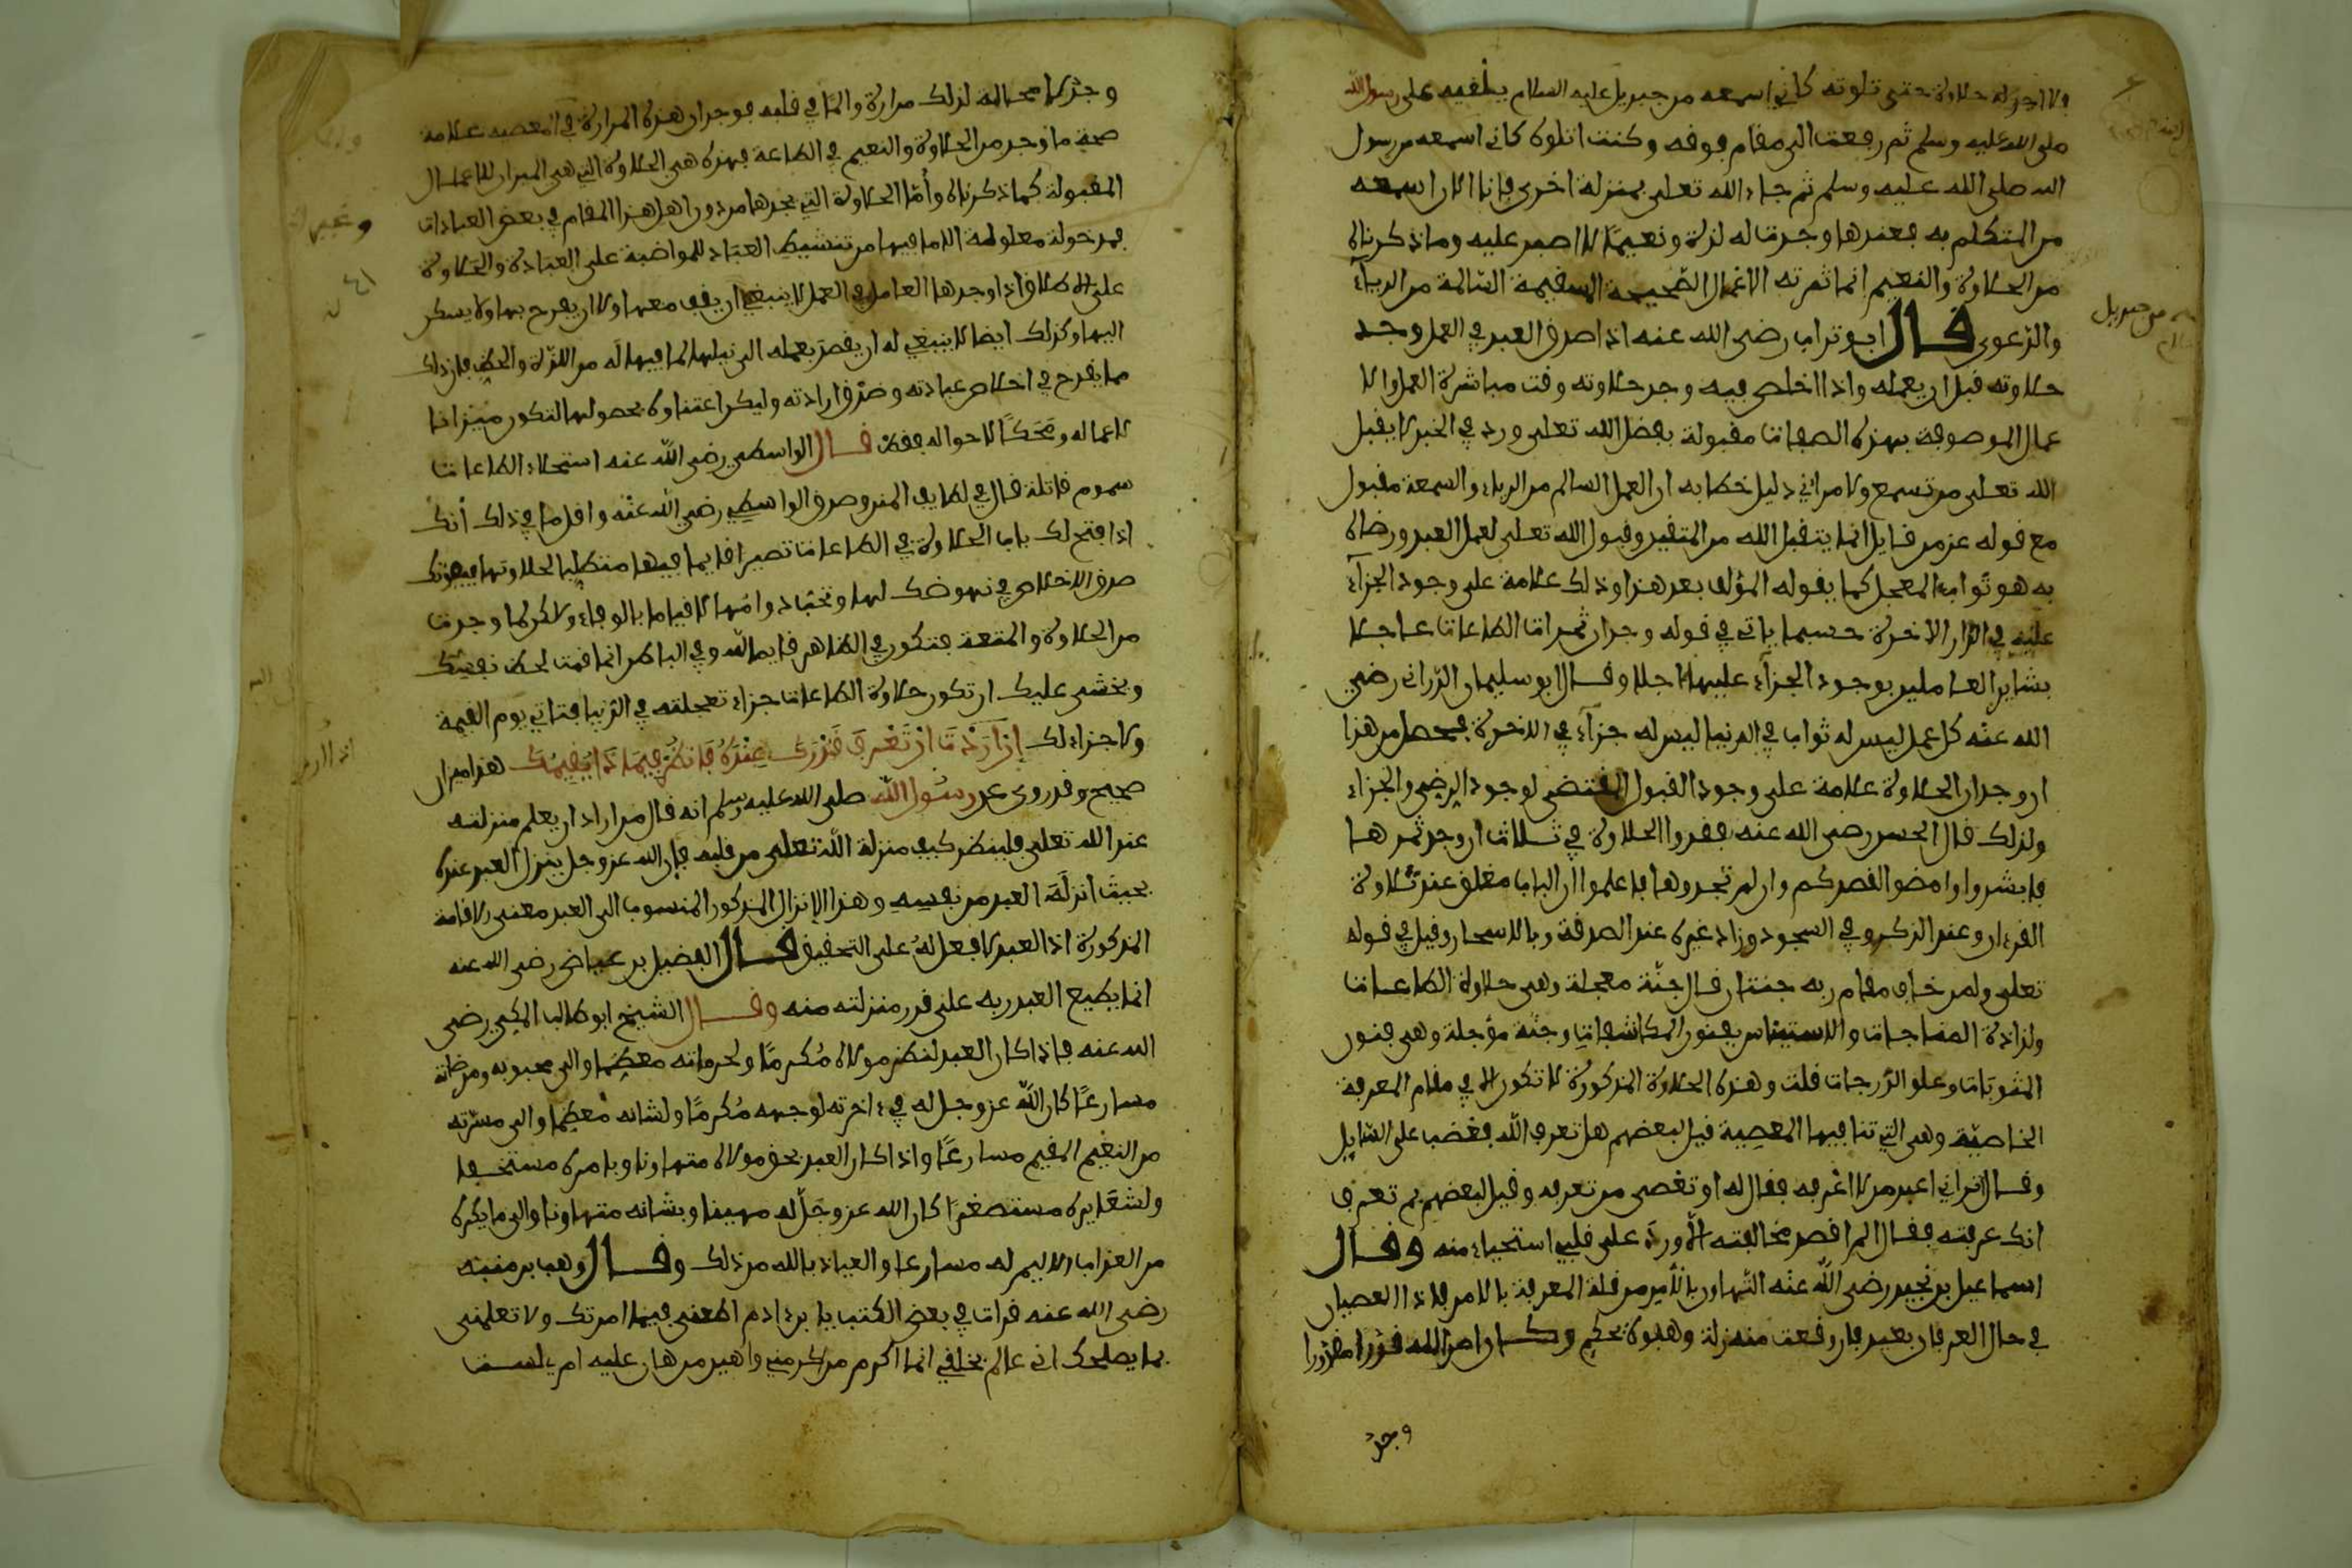 ولا اجد له حلاوة حتى تلوته كاني اسمعه من جبريل عليه السلام يلقيه على رسول الله
صلى الله عليه وسلم ثم رفعت الى مقام فوقه وكنت اتلوه كاني اسمعه من رسول
الله صلى الله عليه وسلم ثم جاء الله تعلى بمنزلة اخرى فانا الان اسمعه
من المتكلم به فعندها وجدت له لذة ونعيمًا لا اصبر عليه وما ذكرناه
من الحلاوة والنعيم انما ثمرته الاعمال الصحيحة السقيمة السالمة من الرياء
والدعوى قال ابو تراب رضى الله عنه اذا صدق العبد في العمل وجد
حلاوته قبل ان يعمله واذا اخلص فيه وجد حلاوته وقت مباشرة العمل والا
عمال الموصوفة بهذه الصفات مقبولة بفضل الله تعلى ورد في الخبر لا يقبل
الله تعلى من تسمع ولا مرائي دليل خطابه ان العمل السالم من الرياء والسمعة مقبول
مع قوله عز من قايل انما يتقبل الله من المتقين وقبول الله تعلى لعمل العبد ورضاه
به هو ثوابه المعجل كما يقوله المؤلف بعد هذا وذلك علامة على وجود الجزاء
عليه في الدار الاخرة حسبما ياتي في قوله وجدان ثمرات الطاعات عاجلا
بشاير العاملين بوجود الجزاء عليها اجلا وقال ابو سليمان الداراني رضي
الله عنه كل عمل ليس له ثواب في الدنيا ليس له جزاء في الاخرة فحصل من هذا
ان وجدان الحلاوة علامة على وجود القبول المقتضى لوجود الرضى والجزاء
ولذلك قال الحسن رضى الله عنه تفقدوا الحلاوة في ثلاث ان وجدتمرها
فابشروا وامضوا لقصدكم وان لم تجدوها فاعلموا ان الباب مغلق عند تلاوة
القرءان وعند الذكر وفي السجود وزاد غيره عند الصدقة وبالاسحار وقيل في قوله
تعلى ولمن خاف مقام ربه جنتان قال جنّة معجلة وهى حلاوة الطاعات
ولذاذة المناجات والاستيناس بفنون المكاشفات وجنّة مؤجلة وهى فنون
المثوبات وعلو الدرجات قلت وهذه الحلاوة المذكورة لا تكون الا في مقام المعرفة
الخاصيّة وهى التي تنافيها المعصية قيل لبعضهم هل تعرف الله فغضب على السايل
وقال تراني اعبد من لا اعرفه فقال له او تعصى من تعرفه وقيل لبعضهم بم تعرف
انك عرفته فقال لم اقصد مخالفته الا ورد على قلبي استحياء منه وقال
اسماعيل بن نجيد رضى الله عنه التهاون بالامر من قلة المعرفة بالامر فاذا العصيان
في حال العرفان بعيد فان وقعت منه زلة وهبوة بحكم وكان امر الله قدرا مقدورا
وجد
وجد لا محالة لذلك مرارة والمًا في قلبه فوجدان هذه المرارة في المعصيه علامة
صحة ما وجد من الحلاوة والنعيم في الطاعة فهذه هى الحلاوة التي هى الميزان للاعمال
المقبولة كما ذكرناه وأمّا الحلاوة التي يجدها من دون اهل هذا المقام في بعض العبادات
فمدخولة معلولة الا ما فيها من تنشيط العبّاد للمواضبة على العبادة والحلاوة
على الاطلاق اذا وجدها العامل في العمل لا ينبغي ان يقف معها ولا ان يفرح بها ولا يسكن
اليها وكذلك ايضا لا ينبغي له ان يقصد بعمله الى نيلها لما فيها له من اللذة والحظ فان ذلك
مما يقدح في اخلاص عبادته وصدق ارادته وليكن اعتناؤه بحصولها لتكون ميزانا
لاعماله ومَحَكاّ لاحواله فقط قال الواسطي رضى الله عنه استحلاء الطاعات
سموم قاتلة قال في لطايف المنن وصدق الواسطي رضى الله عنه واقل ما في ذلك أنك
اذا فتح لك باب الحلاوة في الطاعات تصير قايما فيها متطلبا لحلاوتها فيفوتك
صدق الاخلاص في نهوضك لها وتحب دوامها لا قياما بالوفاء ولكن لما وجدت
من الحلاوة والمتعة فتكون في الظاهر قايما لله وفي الباطن انما قمت لحظ نفسك
ويخشى عليك ان تكون حلاوة الطاعات جزاء تعجلته في الدنيا فتاتي يوم القيمة
ولا جزاء لك إن أَرَدْتَ أَنْ تَعْرِفَ قَدْرَكَ عِنْدَهُ فَانظُرْ فِيمَا ذَا يُقِيمُكَ هذا ميزان
صحيح وقد روى عن رسول الله صلى الله عليه وسلم انه قال من اراد ان يعلم منزلته
عند الله تعلى فلينظر كيف منزلة الله تعلى من قلبه فإن الله عز وجل ينزل العبد عنده
بحيث انزلَهُ العبد من نفسه وهذا الإنزال المذكور المنسوب الى العبد معنى الاقامة
المذكورة اذ العبد لا فعل لهُ على التحقيق قال الفضيل بن عياض رضى الله عنه
انما يطيع العبد ربه على قدر منزلته منه وقال الشيخ ابو طالب المكي رضى
الله عنه فاذا كان العبد لنظر مولاه مُكرمًا ولحرماته معظِما والى محبوبه ومرضاته
مسارعًا كان الله عز وجل له في ءاخرته لوجهه مُكرمًا ولشانه مُعظِما والى مسرّته
من النعيم المقيم مسارعًا واذا كان العبد بحق مولاه متهاونا وبامره مستخفا
ولشعَايره مستصغرًا كان الله عز وجلّ له مهينا وبشانه متهاونا والى ما يكره
من العذاب الاليم له مسارعا والعياذ بالله من ذلك وقال وهب بن منبّه
رضى الله عنه قرات في بعض الكتب يا ابن ءادم اطعنى فيما امرتك ولا تعلمنى
بما يصلحك انى عالم بخلقي انما اكرم من اكرمني واهين من هان عليه امري لست